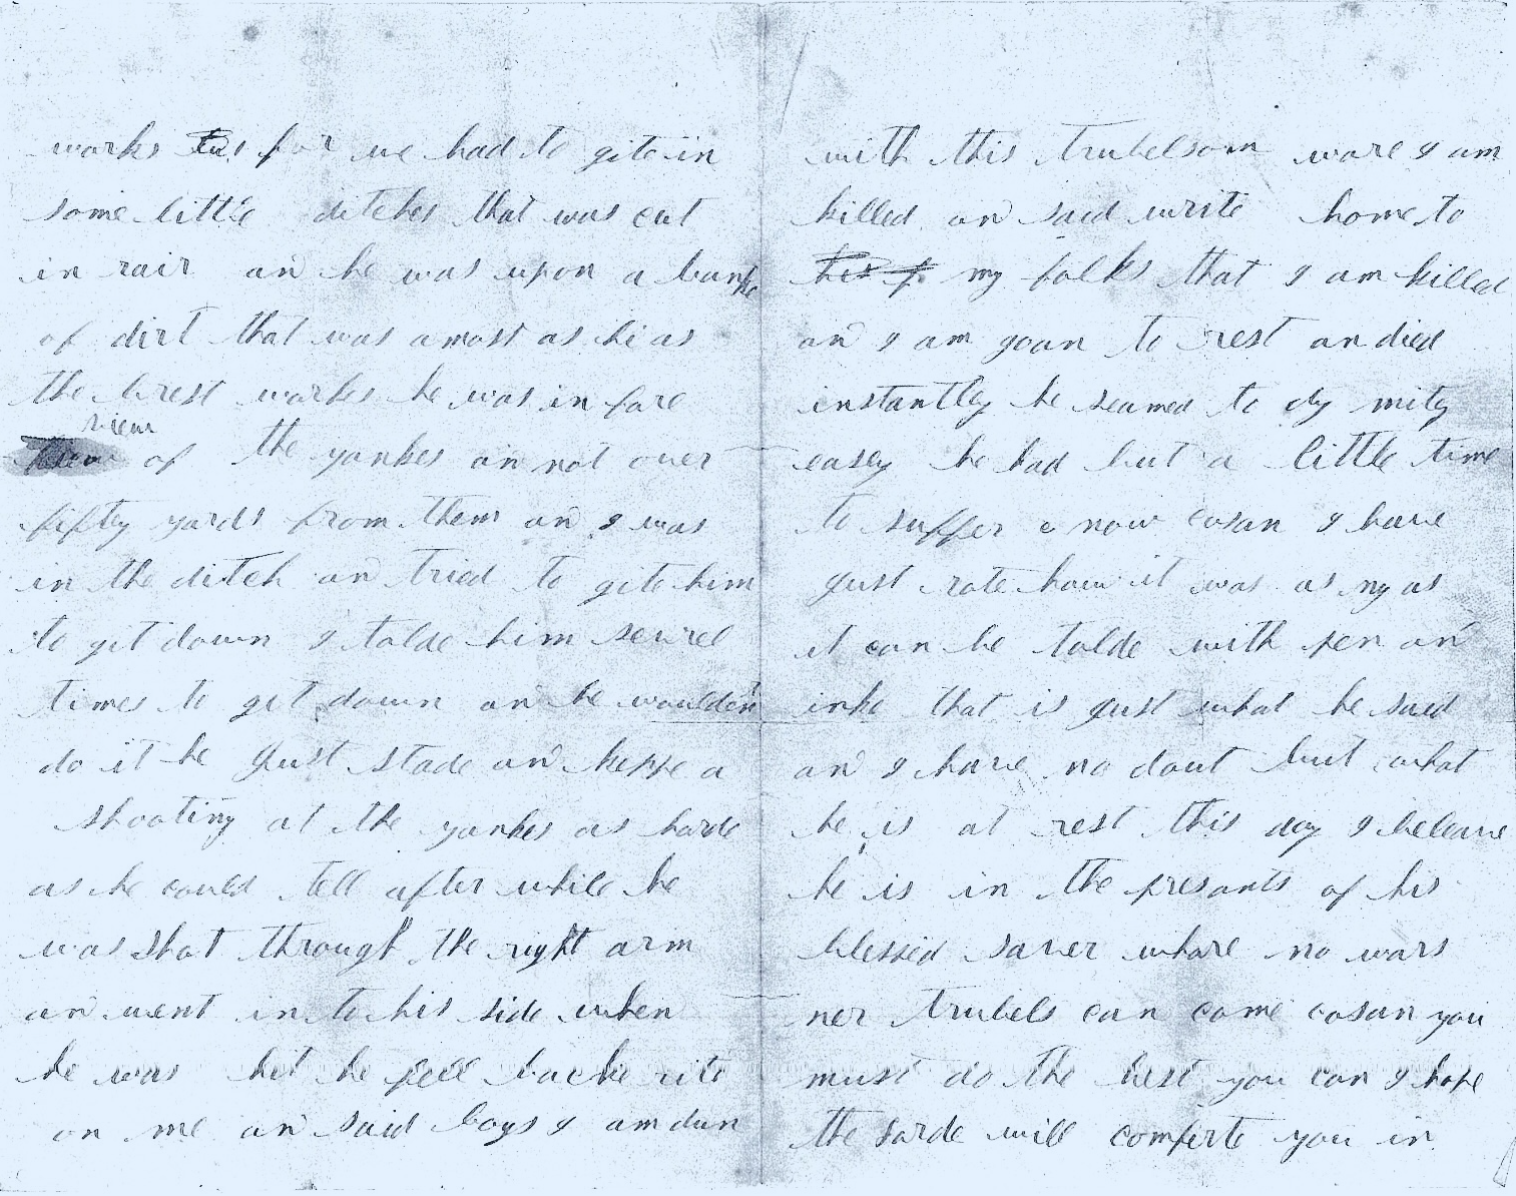 works for we had to gite in
some little ditches that was cut
in rair an he was upon a banke
of dirt that was amost as hi as
the brest workes he was in fare
view
of the yankes an not over
fifty yards from them an I was
in the ditch an tried to gite him
to git down I talde him severel
times to git down an he wouldent
do it he gust stade an keppe a
shooting at the yankes as harde
as he could tell after while he
was shot through the right arm
an went in to his side when
he was hit he fell backe rite
on me an said boys I am dun
with this trubelsom ware I am
killed an said write home to
my folks that I am killed
an I am goan to rest an died
instantley he seamed to dy mity
easey he had but a little time
to suffer now cosan I have
gust rote how it was as ny as
it can be talde with pen an
inke that is gust what he said
an I have no dout but what
he is at rest this day I beleave
he is in the presants of his
blessed saver whare no wars
ner trubels can come cosan you
must do the best you can I hope
the larde will comferte you in